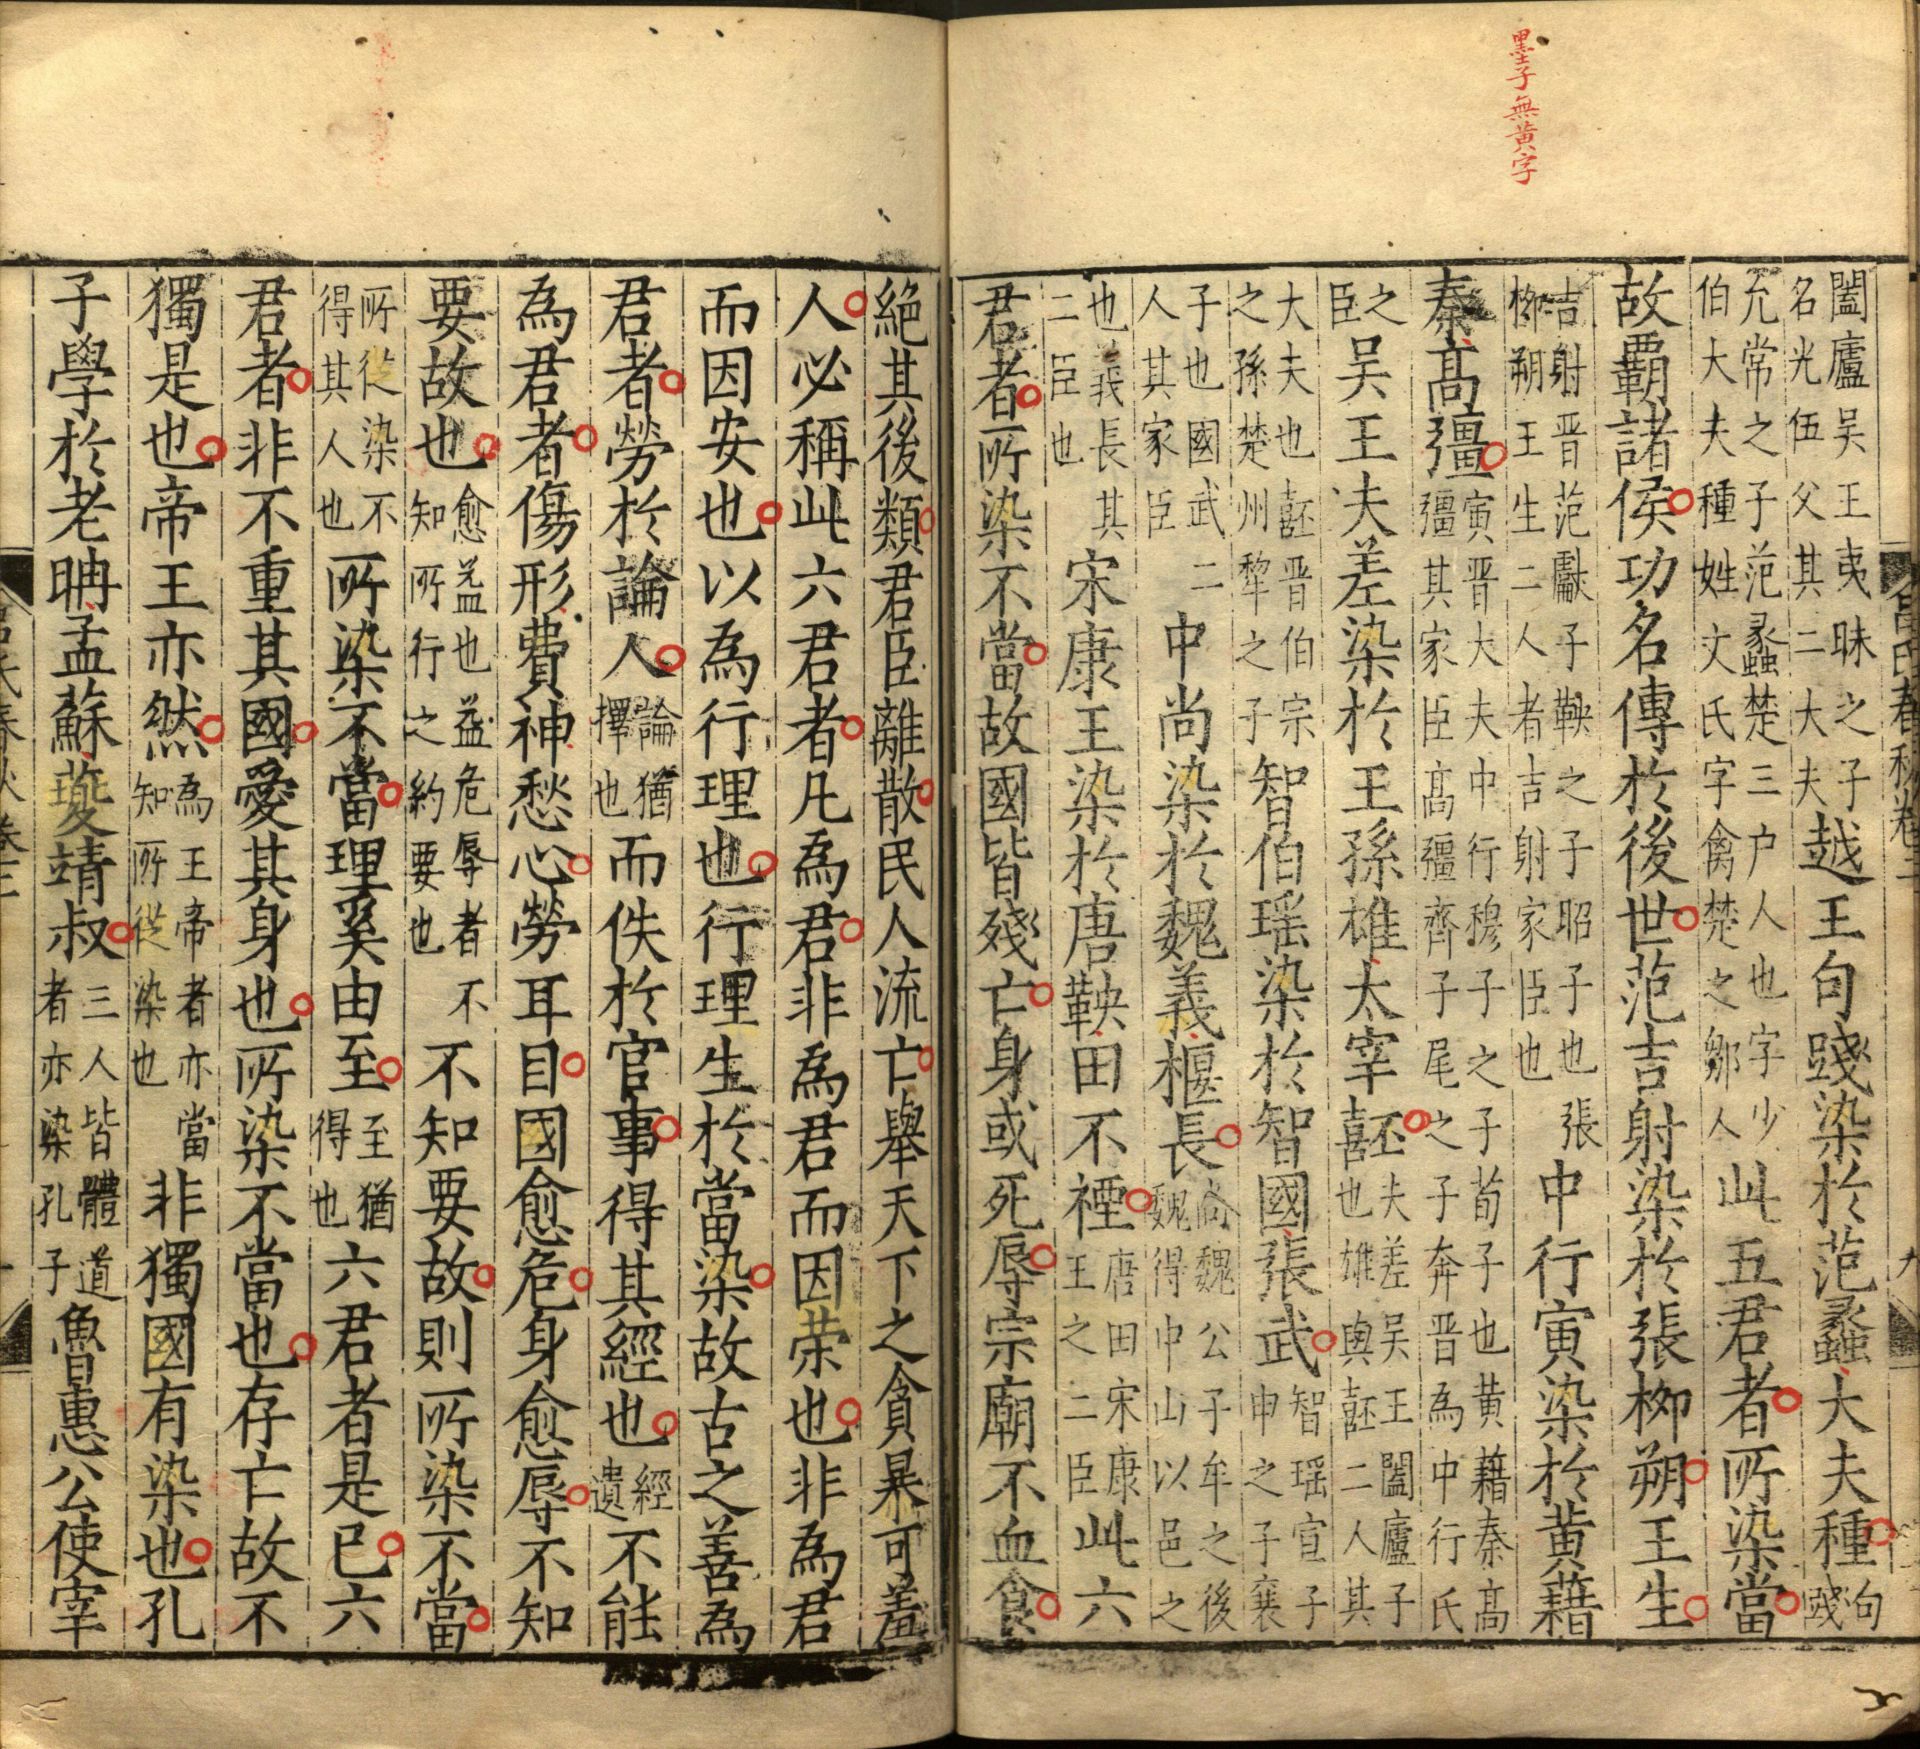 墨子無黄字
闔廬吴王夷昧之子名光伍父其二大夫越王句踐染於范蠡大夫種句踐
允常之子范蠡楚三户人也字少伯大夫種姓文氏字禽楚之鄒人此五君者所染當
故霸諸侯功名傳於後世范吉射染於張柳朔王生
吉射晋范獻子鞅之子昭子也張柳朔王生二人者吉射家臣也中行寅染於黄藉
秦高彊寅晋大夫中行穆子之子荀子也黄藉秦高彊其家臣高彊齊子尾之子奔晋為中行氏
之臣吴王夫差染於王孫雄太宰嚭夫差吴王闔廬子也雄與嚭二人其
大夫也嚭晋伯宗之孫楚州犂之子智伯瑶染於智國張武智瑶宣子申之子襄
子也國武二人其家臣中尚染於魏義椻長尚魏公子牟之後魏得中山以邑之
也義長其二臣也宋康王染於唐鞅田不禋唐田宋康王之二臣此六
君者所染不當故國皆殘亡身或死辱宗廟不血食
絕其後類君臣離散民人流亡舉天下之貪暴可羞
人必稱此六君者凡為君非為君而因荣也非為君
而因安也以為行理也行理生於當染故古之善為
君者勞於論人論猶擇也而佚於官事得其經也經遺不能
為君者傷形費神愁心勞耳目國愈危身愈辱不知
要故也愈益也益危辱者不知所行之約要也不知要故則所染不當
所從染不得其人也所染不當理奚由至至猶得也六君者是已六
君者非不重其國愛其身也所染不當也存亡故不
獨是也帝王亦然為王帝者亦當知所從染也非獨國有染也孔
子學於老聃孟蘇夔靖叔三人皆體道者亦染孔子魯惠公使宰